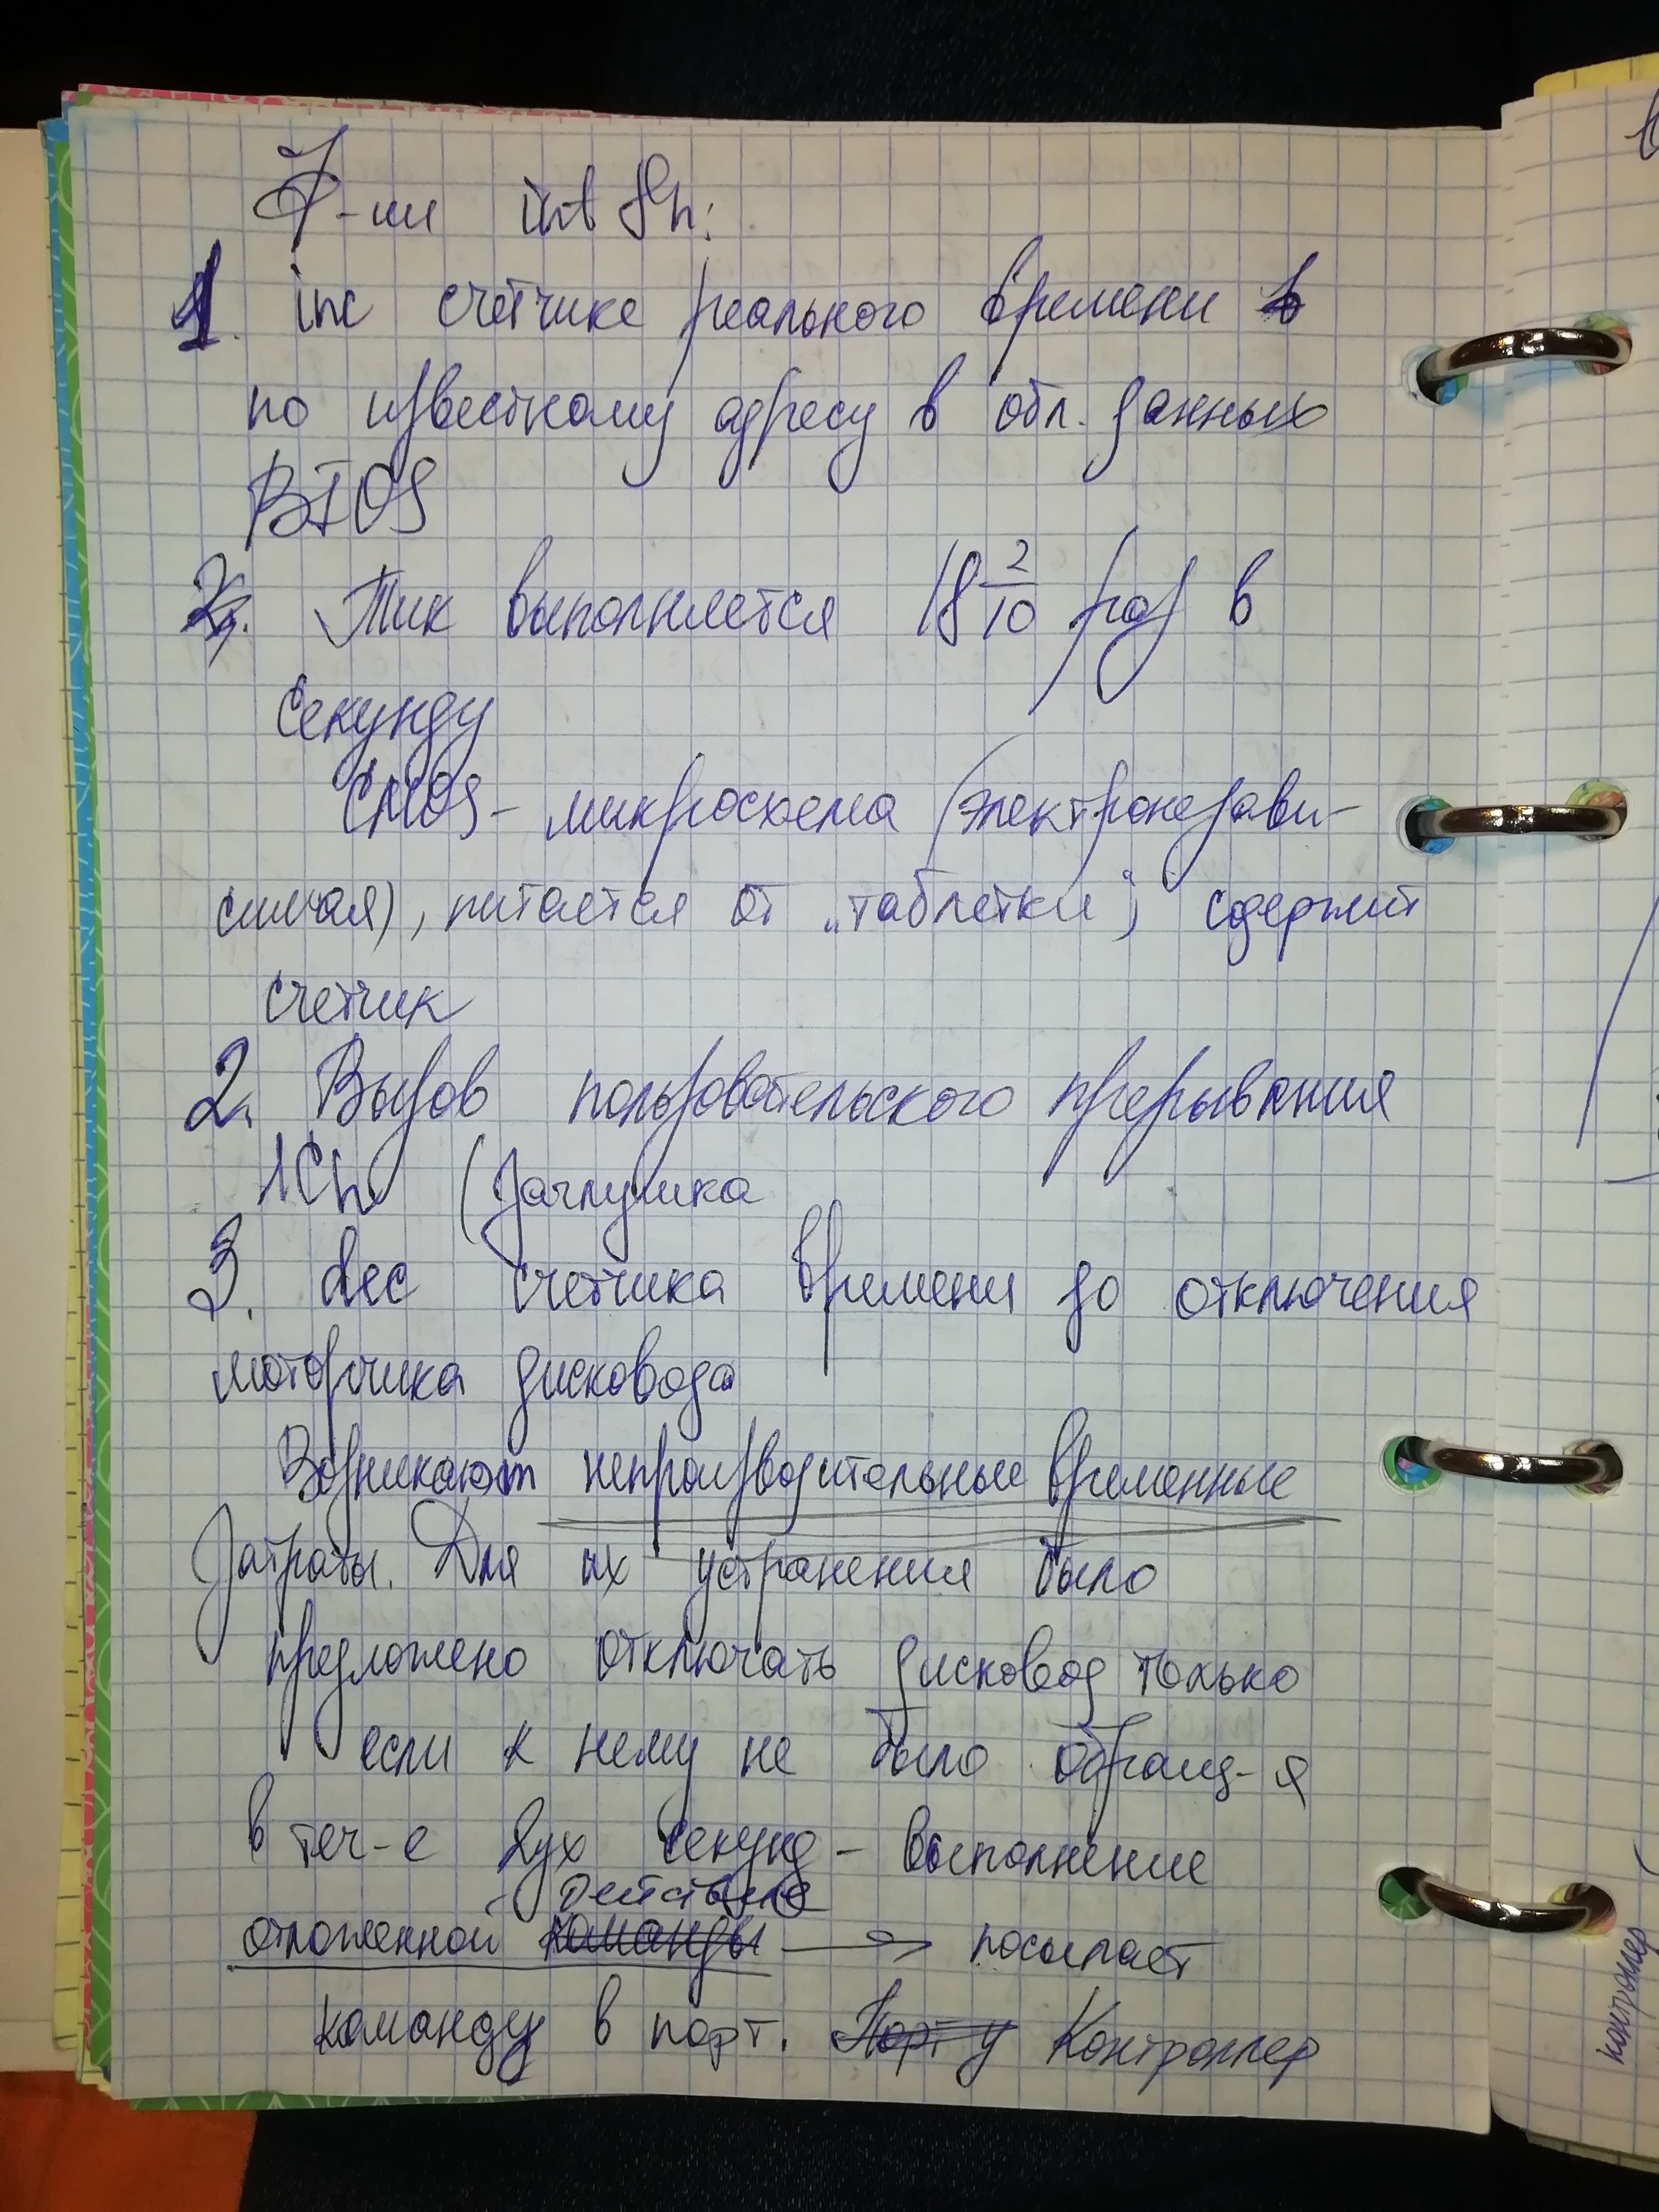 Ф-ии int 8h:
1. inc счетчике реального времени в
по известному адресу в обл. данных
BIOS
2. Тик выполняется 18 2/10 раз в
секунду
CMOS - микросхема (электронезави-
симая), питается от „таблетки", содержит
счетчик
2. Вызов пользовательского прерывания
1Ch (заглушка
3. dec счетчика времени до отключения
моторчика дисковода
Возникают непроизводительные временные
затраты. Для их устранения было
предложено отключать дисковод только
если к нему не было обращ-я
в теч-е двух секунд - выполнение
действие
отложенной команды → посылает
команду в порт. Порт у Контроллер
контроллер